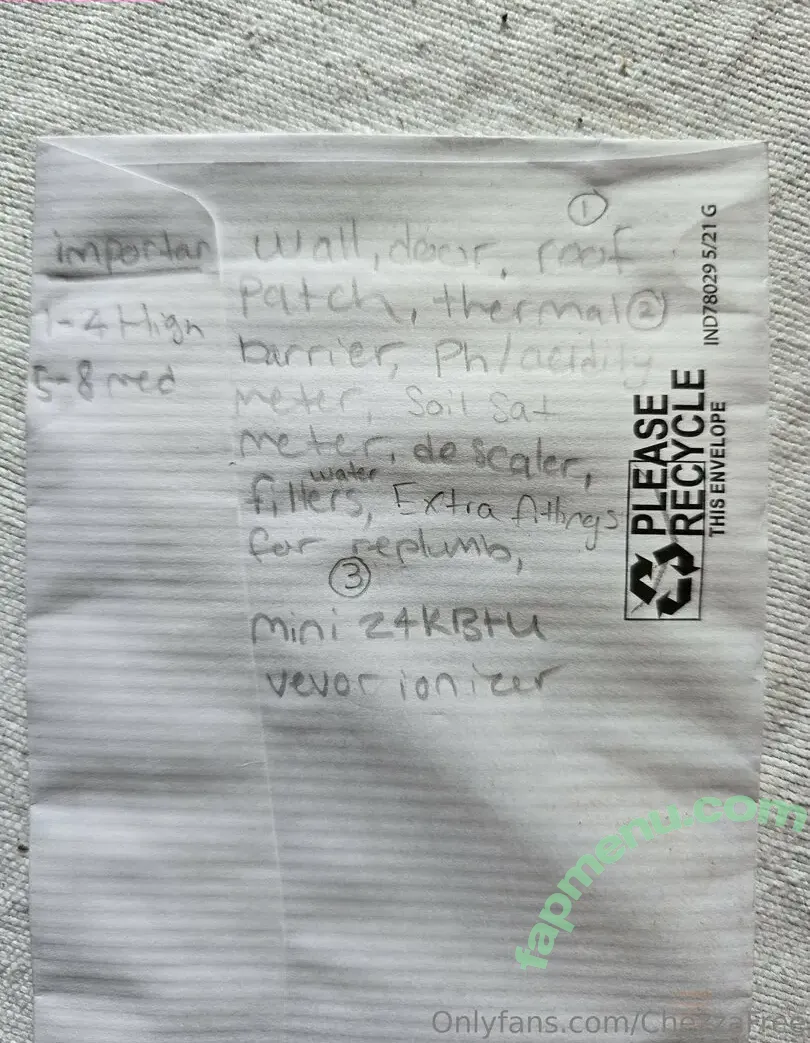 importan
1-4 High
5-8 med
①
wall, decor, roof
patch, thermal ②
barrier, Ph/acidity
meter, Soil Sat
meter, descaler,
water
filters, Extra fittings
for replumb,
③
mini 24KBtu
vevor ionizer
IND78029 5/21 G
PLEASE
RECYCLE
THIS ENVELOPE
fapmenu.com
Onlyfans.com/ChezzaFree